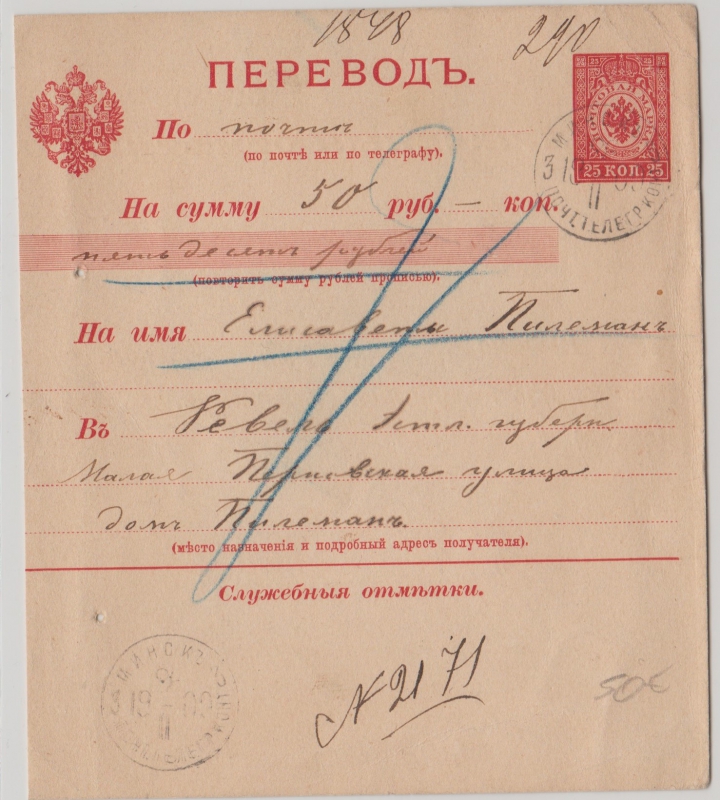 1848
290
ПЕРЕВОДЪ.
ПОЧТОВАЯ МАРКА
25 КОП. 25
По почтѣ
(по почтѣ или по телеграфу).
На сумму 50 руб. – коп.
пятьдесятъ рублей
(повторить сумму рублей прописью).
На имя Елисаветы Пилеманъ
Въ Ревель Эстл. губерн.
Малая Перновская улица
домъ Пилеманъ.
(мѣсто назначенія и подробный адресъ получателя).
Служебныя отмѣтки.
МИНСКЪ
N 2171
50€